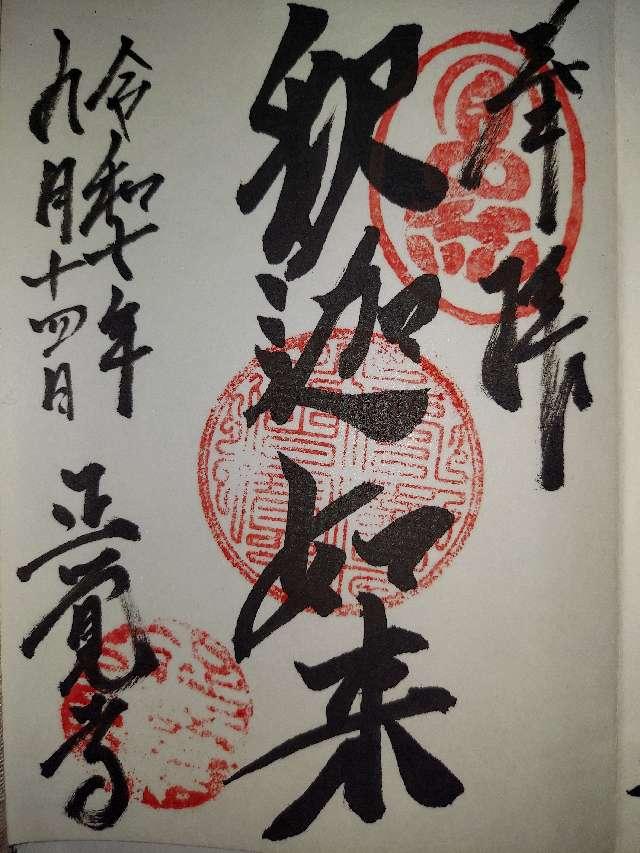 奉拝
釈迦如来
令和七年
九月十四日
正覚寺